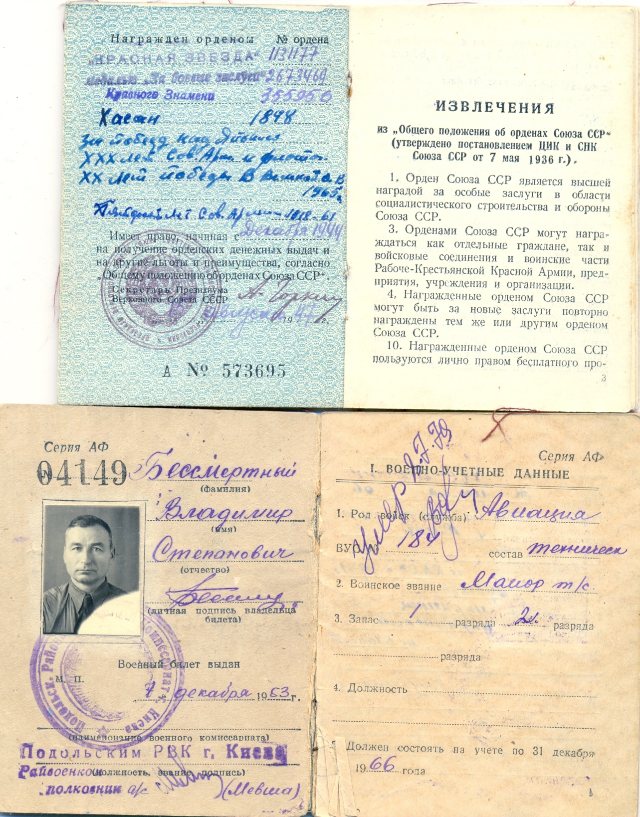 Награжден орденом № ордена
"КРАСНАЯ ЗВЕЗДА" 1131177
медалью „За боевые заслуги" 2673469
Красного Знамени 355950
Хасан 1848
За победу над
XXX лет Сов. Арм. и флота
XX лет победы в В.
1965г
Сов. Ар
Имеет право, начиная с декабря 1944
на получение орденских денежных выдач и
на другие льготы и преимущества, согласно
„Общему положению об орденах Союза ССР".
Секретарь Президиума
Верховного Совета СССР А. Горкин
августа 19 г.
А № 573695
ИЗВЛЕЧЕНИЯ
из „Общего положения об орденах Союза ССР"
(утверждено постановлением ЦИК и СНК
Союза ССР от 7 мая 1936 г.).
1. Орден Союза ССР является высшей
наградой за особые заслуги в области
социалистического строительства и обороны
Союза ССР.
3. Орденами Союза ССР могут награ-
ждаться как отдельные граждане, так и
войсковые соединения и воинские части
Рабоче-Крестьянской Красной Армии, пред-
приятия, учреждения и организации.
4. Награжденные орденом Союза ССР
могут быть за новые заслуги повторно
награждены тем же или другим орденом
Союза ССР.
10. Награжденные орденом Союза ССР
пользуются лично правом бесплатного про-
3
Серия АФ
04149
Бессмертный
(фамилия)
Владимир
(имя)
Степанович
(отчество)
(личная подпись владельца
билета)
Военный билет выдан
М. П.
7 декабря 1963 г.
(наименование военного комиссариата)
Подольским РВК г. Киева
Райвоенком (должность, звание, подпись)
полковник а/с (Мевша)
Серия АФ
I. ВОЕННО-УЧЕТНЫЕ ДАННЫЕ
Умер
1. Род войск (служба) Авиация
ВУС 184 состав техническ
2. Воинское звание Майор т/с
3. Запас 1 разряда 2 разряда
разряда
4. Должность
Должен состоять на учете по 31 декабря
1966 года